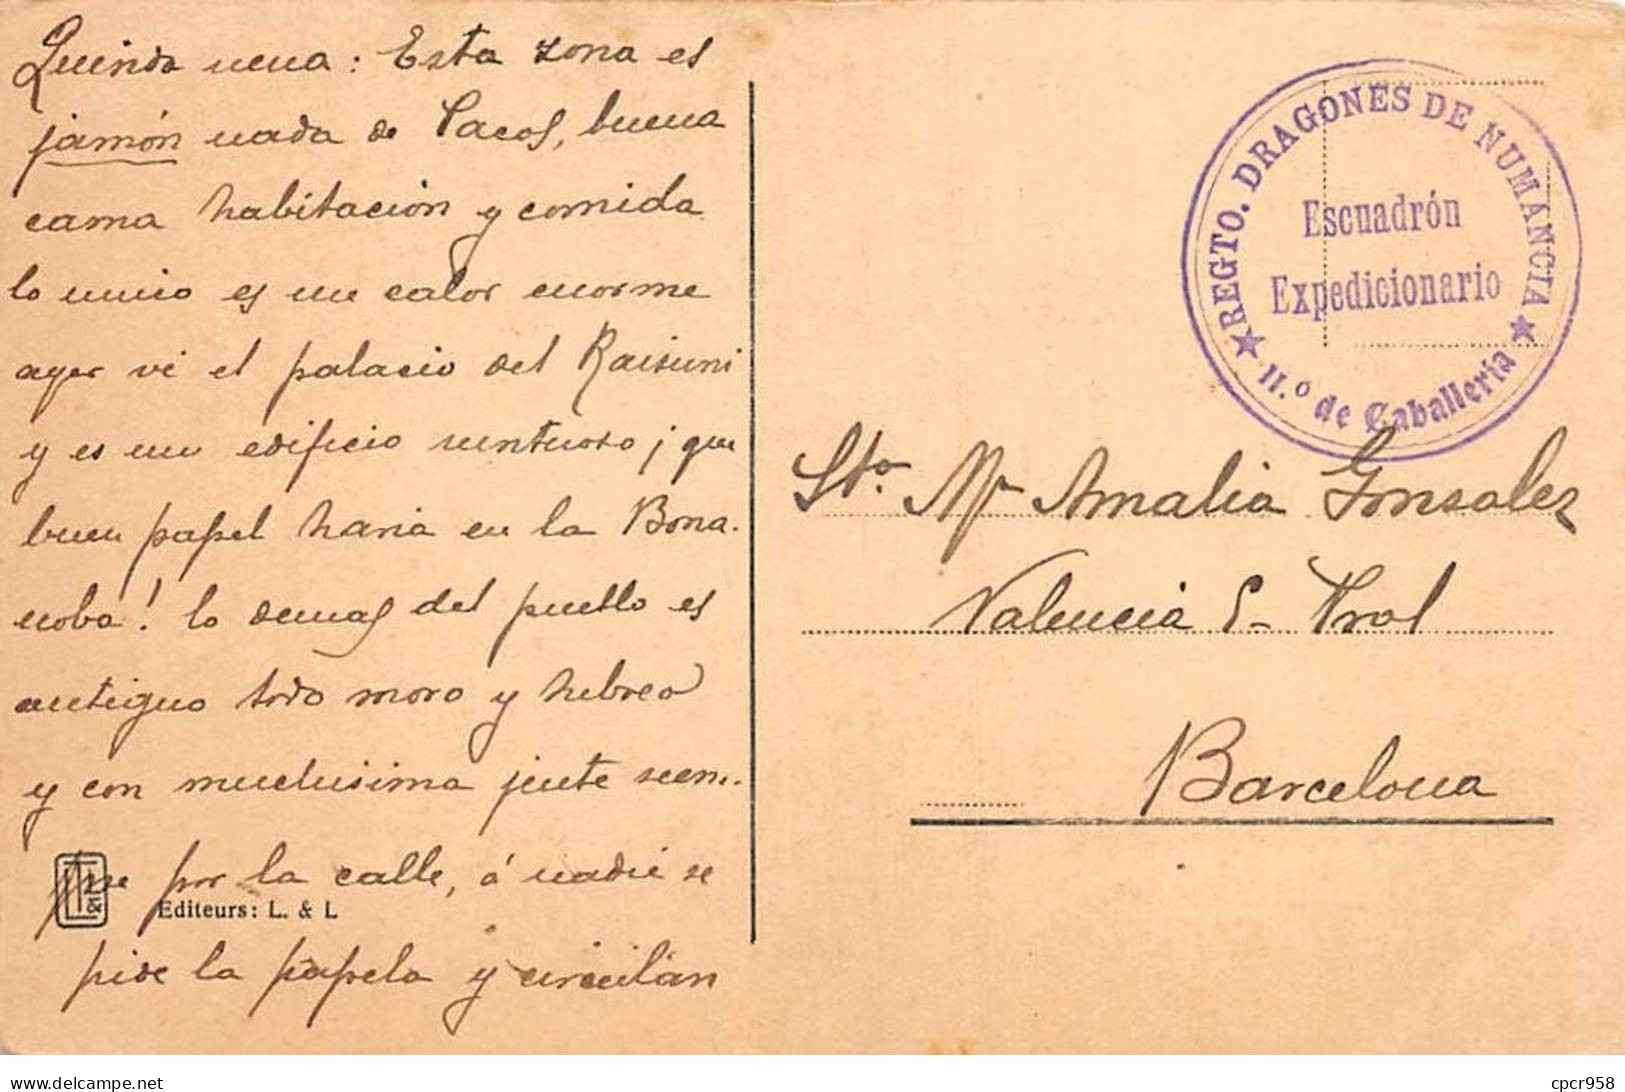 Querida nena: Esta zona es
jamón nada de Pacos, buena
cama habitación y comida
lo unico es un calor enorme
ayer vi el palacio del Raisuni
y es un edificio suntuoso ¡que
buen papel haria en la Bona-
noba! lo demas del pueblo es
antiguo todo moro y hebreo
y con muchisima jente siem-
pre por la calle, á nadie se
pide la papela y circulan
Editeurs: L. & L
L & L
REGTO. DRAGONES DE NUMANCIA
Escuadrón
Expedicionario
11.º de Caballeria
Sta. Mª Amalia Gonsalez
Valencia
Barcelona
cpcr958